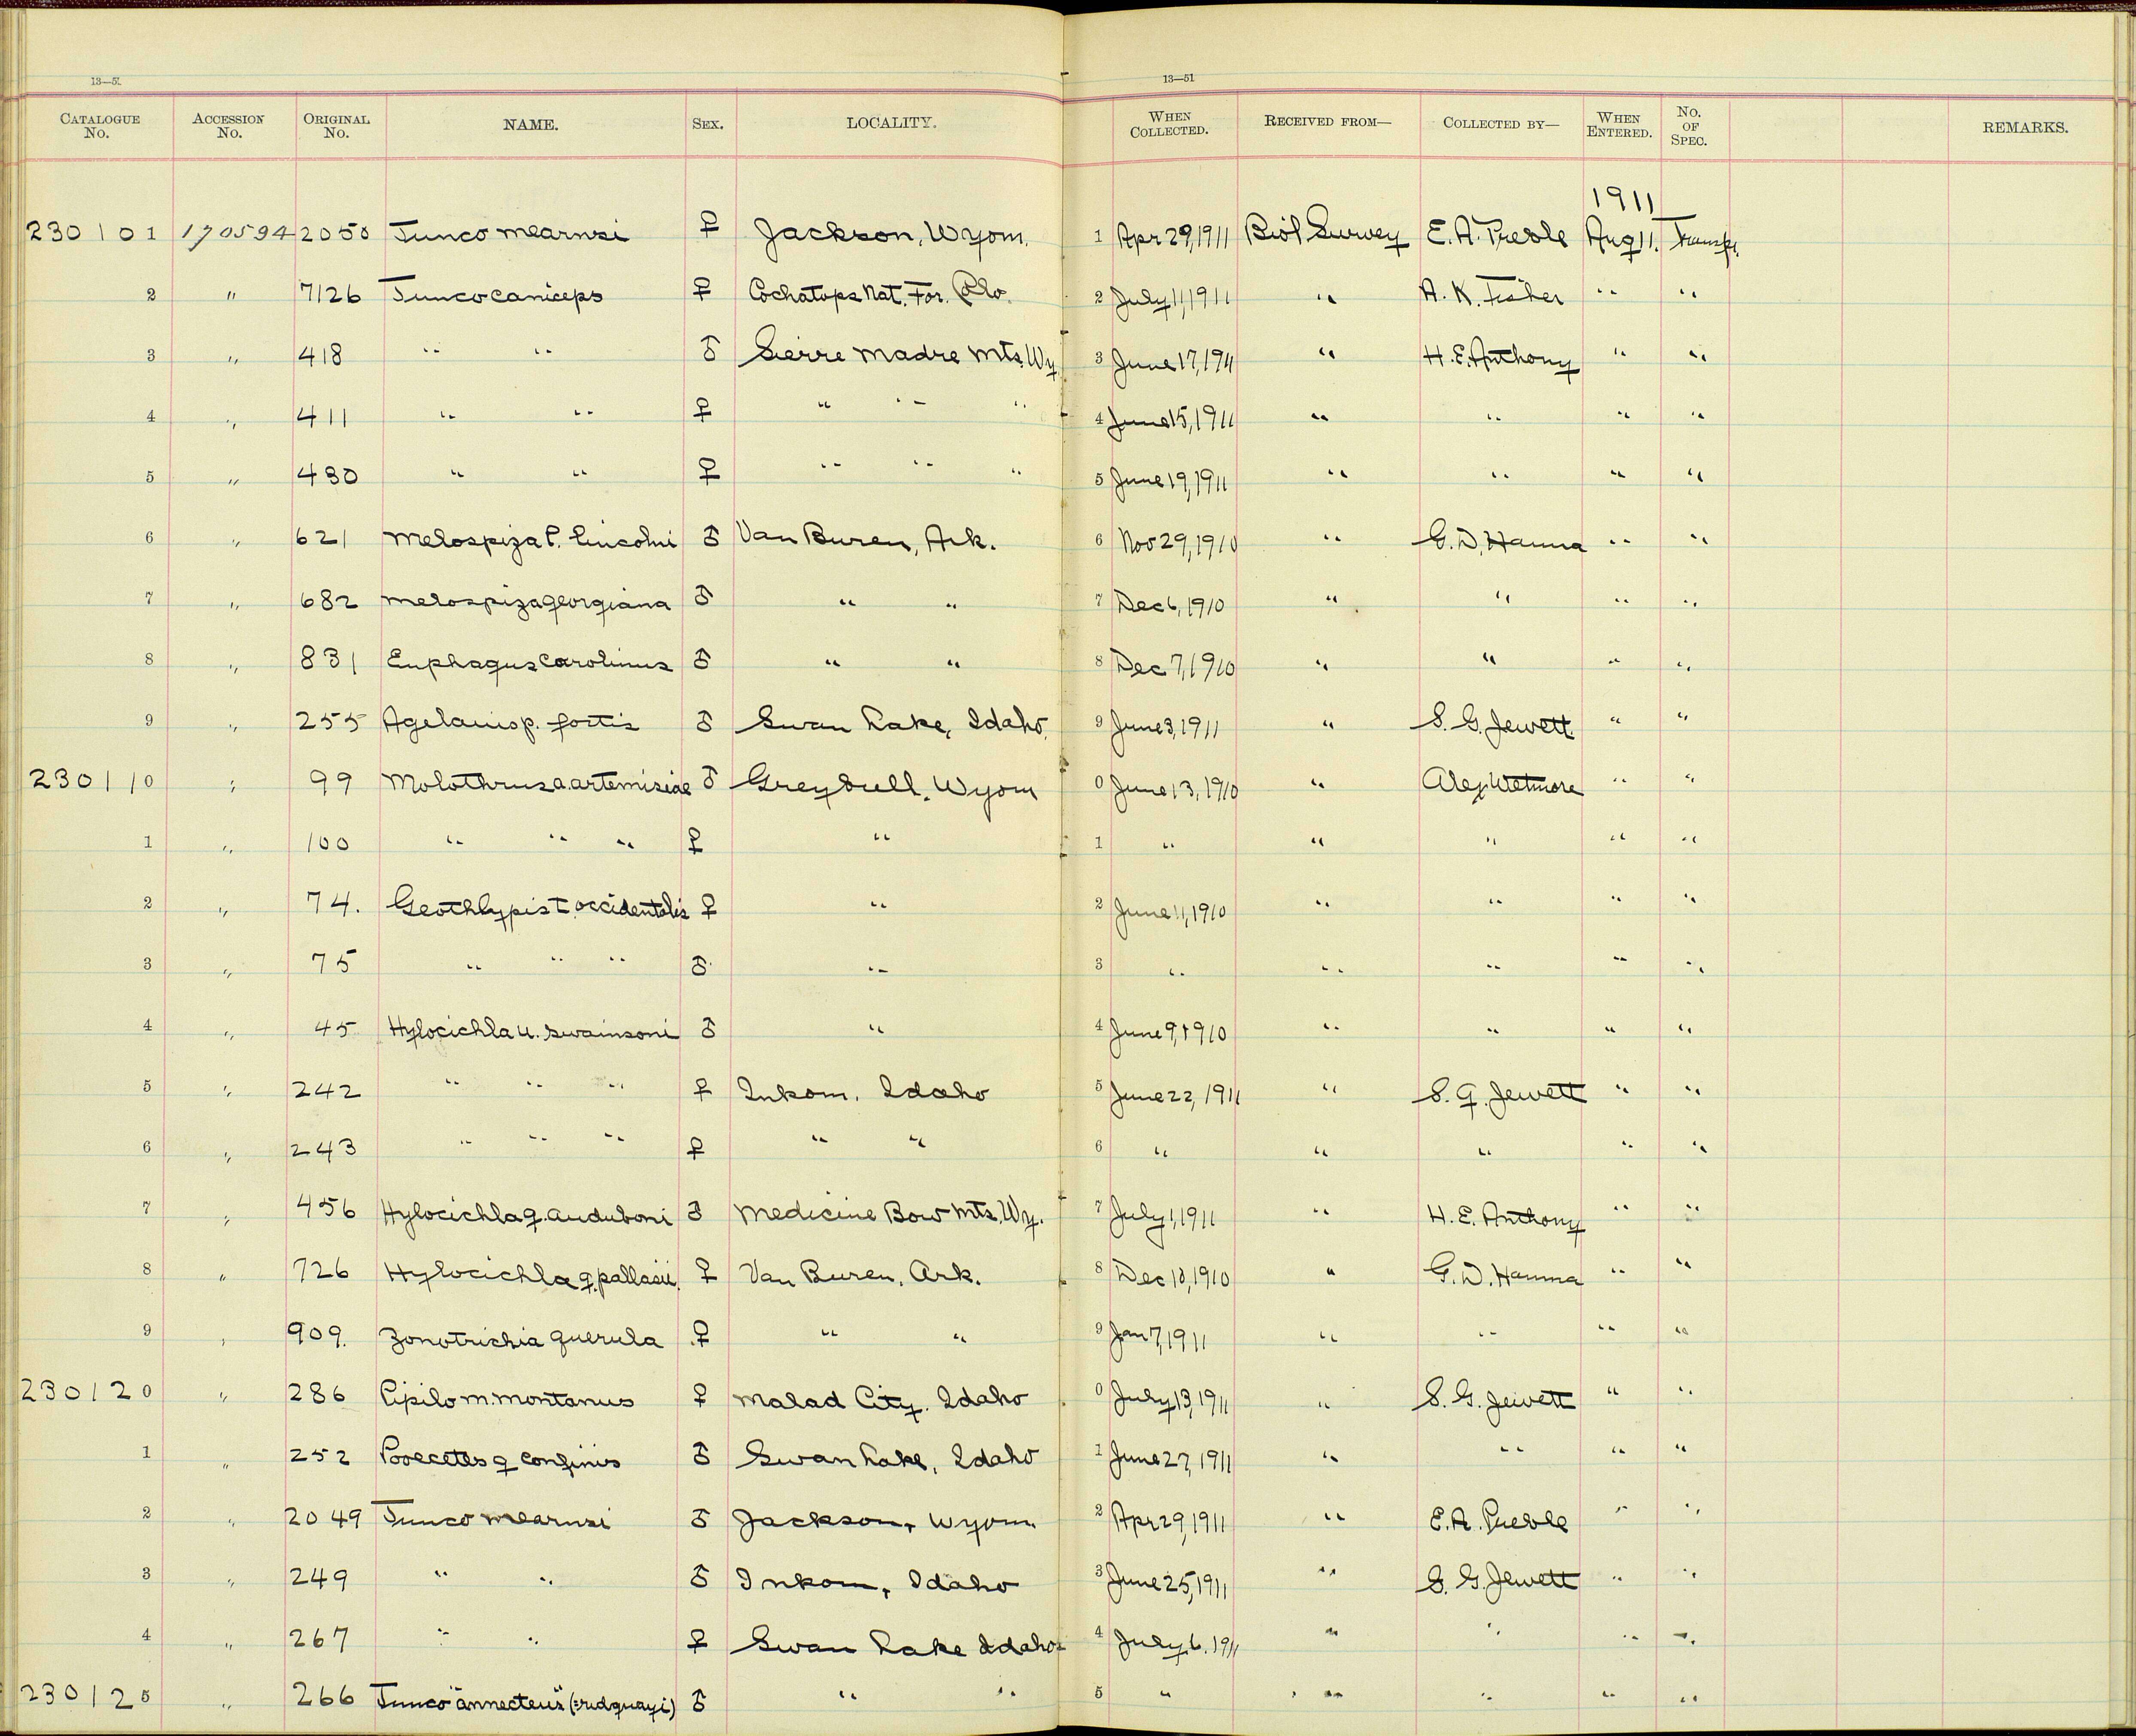 13—51
13—51
CATALOGUE No. ACCESSION No. ORIGINAL No. NAME. SEX. LOCALITY. WHEN COLLECTED. RECEIVED FROM— COLLECTED BY— WHEN ENTERED. No. OF SPEC. REMARKS.
1911
230101 170594 2050 Junco mearnsi ♀ Jackson, Wyom. 1 Apr 29, 1911 Biol Survey E. A. Preble Aug 11. Transfr.
2 " 7126 Junco caniceps ♀ Cochatopa Nat. For. Colo. 2 July 11, 1911 " A. K. Fisher " "
3 " 418 " " ♂ Sierre Madre Mts, Wy 3 June 17, 1911 " H. E. Anthony " "
4 " 411 " " ♀ " " " 4 June 15, 1911 " " " "
5 " 430 " " ♀ " " " 5 June 19, 1911 " " " "
6 " 621 Melospiza l. lincolni ♂ Van Buren, Ark. 6 Nov 29, 1910 " G. D. Hanna " "
7 " 682 Melospiza georgiana ♂ " " 7 Dec 6, 1910 " " " "
8 " 831 Euphagus carolinus ♂ " " 8 Dec 7, 1910 " " " "
9 " 255 Agelaius p. fortis ♂ Swan Lake, Idaho. 9 June 3, 1911 " S. G. Jewett " "
230110 " 99 Molothrus a. artemisiae ♂ Greybull, Wyom 0 June 13, 1910 " Alex Wetmore " "
1 " 100 " " " ♀ " 1 " " " " "
2 " 74. Geothlypis t. occidentalis ♀ " 2 June 11, 1910 " " " "
3 " 75 " " " ♂ " 3 " " " " "
4 " 45 Hylocichla u. swainsoni ♂ " 4 June 9, 1910 " " " "
5 " 242 " " " ♀ Inkom, Idaho 5 June 22, 1911 " S. G. Jewett " "
6 " 243 " " " ♀ " " 6 " " " " "
7 " 456 Hylocichla g. auduboni ♂ Medicine Bow Mts, Wy. 7 July 1, 1911 " H. E. Anthony " "
8 " 726 Hylocichla g. pallasii. ♀ Van Buren, Ark. 8 Dec 10, 1910 " G. D. Hanna " "
9 " 909. Zonotrichia querula ♀ " " 9 Jan 7, 1911 " " " "
230120 " 286 Pipilo m. montanus ♀ Malad City, Idaho 0 July 13, 1911 " S. G. Jewett " "
1 " 252 Pooecetes g confinis ♂ Swan Lake, Idaho 1 June 27, 1911 " " " "
2 " 2049 Junco mearnsi ♂ Jackson, Wyom. 2 Apr 29, 1911 " E. A. Preble " "
3 " 249 " " ♂ Inkom, Idaho 3 June 25, 1911 " S. G. Jewett " "
4 " 267 " " ♀ Swan Lake Idaho 4 July 6. 1911 " " " "
230125 " 266 Junco "annectens" (=ridgwayi) ♂ " " 5 " " " " "